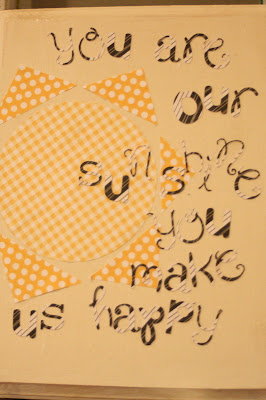 you are
our
sunshine
you
make
us happy